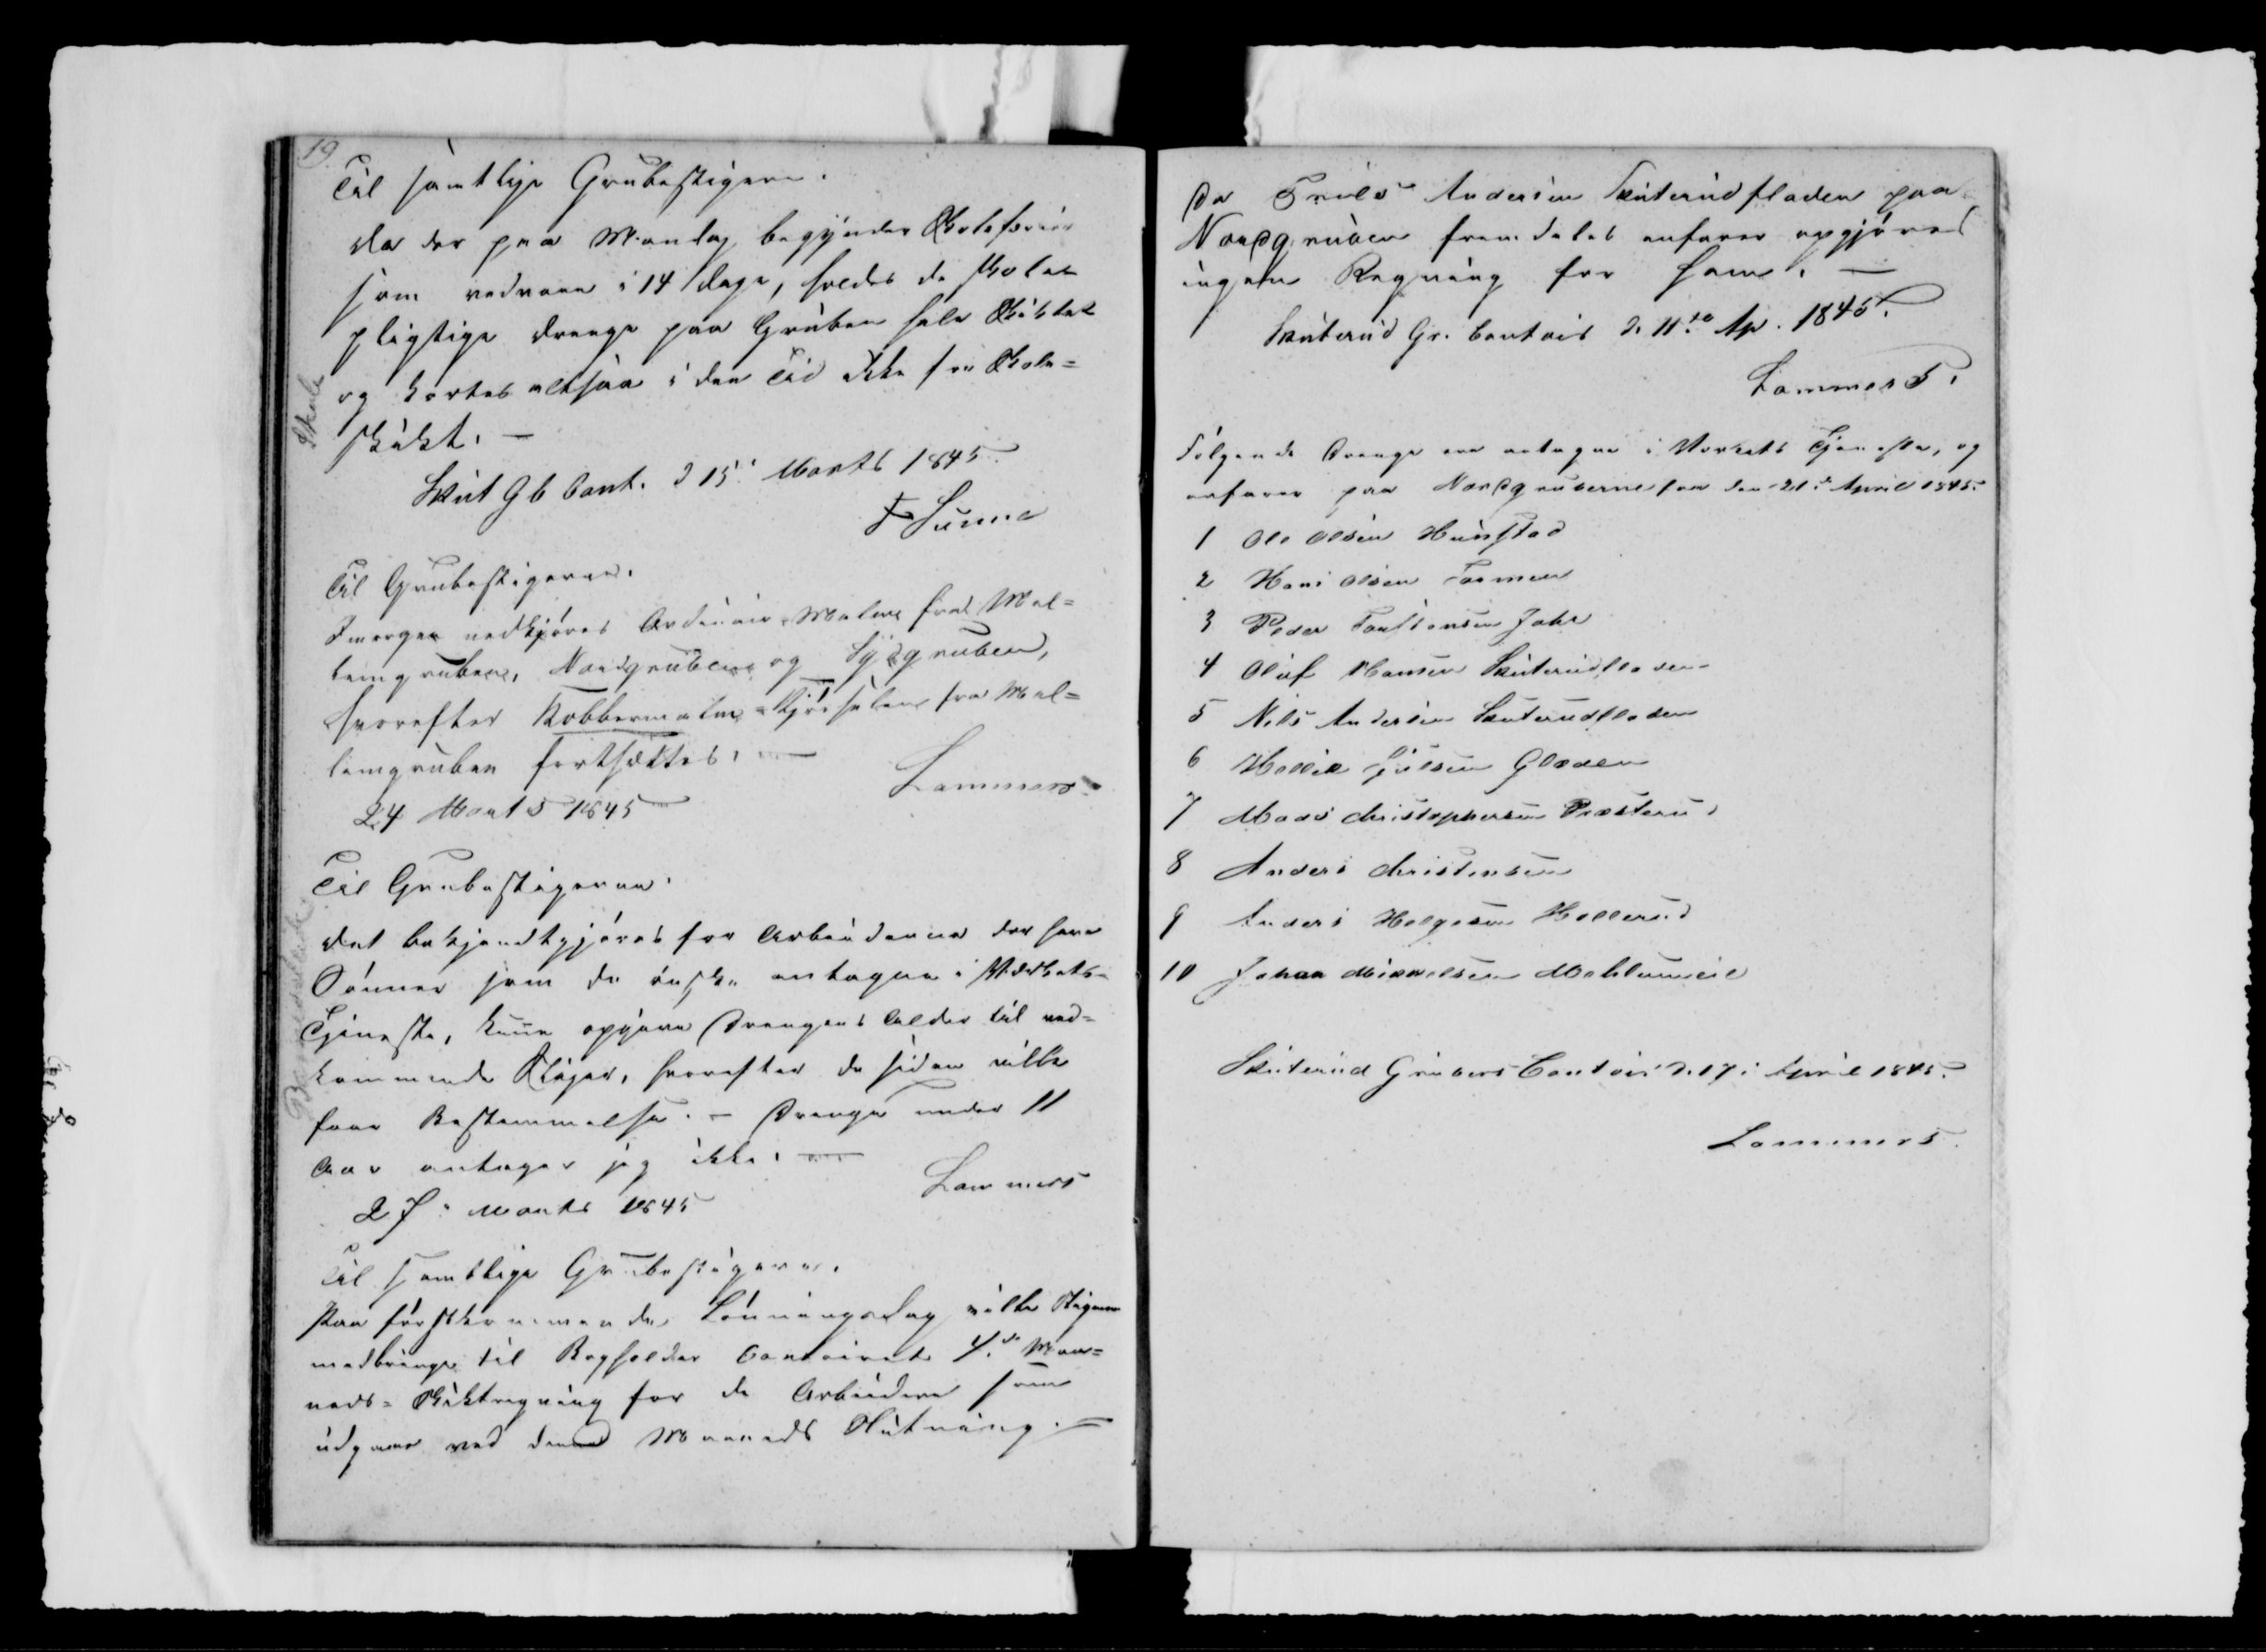 19.
Til samtlige Grubestigere.
Da der paa Mandag begynder Skoleferier
som vedvare i 14 Dage, holdes de skole
pligtige Drenge paa Gruben hele Skiktet
og kortes altsaa i den Tid ikke for Skole=
skikt. —
Skole
Skut Gb Cont. d 15. Marts 1845
F Sunne
Til Grubestigerne.
Imorgen nedkjøres Ordinair Malm fra Mel=
lemgruben, Nordgruben og Sydgruben,
hvorefter Kobbermalm=Kjørselen fra Mel=
lemgruben fortsættes. —
Lammers
24 Marts 1845
Til Grubestigerne.
Det bekjendtgjøres for Arbeiderne der have
Sønner som de ønske antagne i Værkets
Tjeneste, kunne opgive Drengens Alder til ved=
kommende Stiger, hvorefter de siden ville
faae Bestemmelse. — Drenge under 11
Aar antager jeg ikke. —
Lammers
27. Marts 1845
Til samtlige Grubestigere.
Paa førstkommende Lønningsdag ville Stigerne
medbringe til Bogholder Contoiret 4de Maa=
neds=Skiktregning for de Arbeidere som
udgaae ved denne Maaneds Slutning. —
Da Truls Andersen Skuterudfladen paa
Nordgruben fremdeles anfarer opgjøres
ingen Regning for ham. —
Skuterud Gr. Contoir d. 11te Ap. 1845.
Lammers.
Følgende Drenge ere antagne i Værkets Tjeneste, og
anfarer paa Nordgruberne fra den 21de April 1845.
1 Ole Olsen Hunstad
2 Hans Olsen
3 Peder Johr
4 Oluf Hansen Skuterudfladen
5 Nils Andersen Skuterudfladen
6 Gulsen
7 Mads Christophersen Præsterud
8 Anders Christensen
9 Anders Helgesen Hollerud
10 Johan Mikkelsen
Skuterud Grubers Contoir d. 17. April 1845.
Lammers.